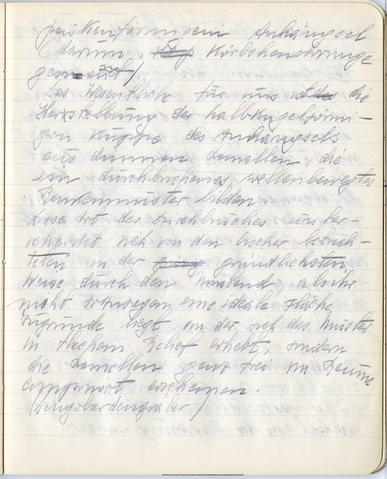 paukenförmigem Anhängsel
darum, Körbchenohrringe
genannt)
Das Wesentliche für uns ist die
Herstellung der halbkugelförmi-
gen Kuppe des Anhängsels
aus dünnen Lamellen, die
ein durchbrochenes, wellenbewegtes
Rankenmuster bilden
Diese Art des Durchbruches unter-
scheidet sich von den bisher betrach-
teten in der gründlichsten
Weise durch den Umstand, als ihr
nicht
eine ideale Fläche
zugrunde liegt, von der sich das Muster
in flachem Relief erhebt, sondern
die Lamellen ganz frei im Raume
componiert erscheinen.